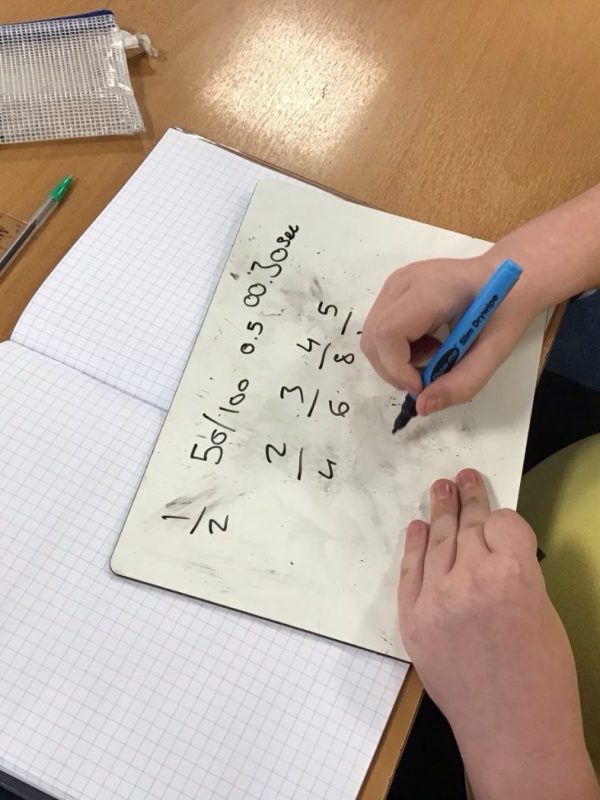 1/2 50/100 0.5 00:30sec
2/4 3/6 4/8 5/
Slim Drywipe